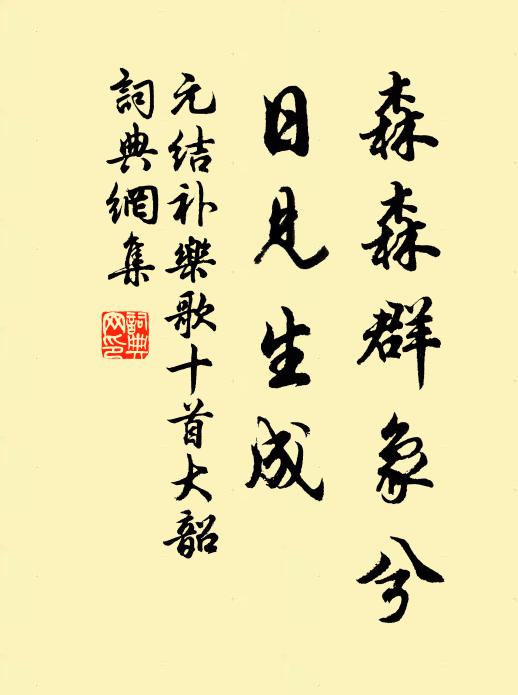 森森群象兮
日見生成
元结补樂歌十首大韶
詞典網集
詞典
网印